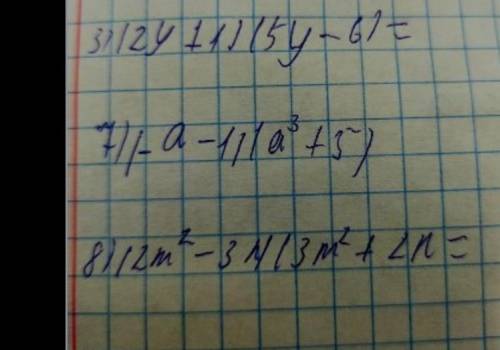 3) (2y + 1) (5y - 6) =
7) (- a - 1) (a³ + 5)
8) (2m² - 3n) (3m² + 2n =